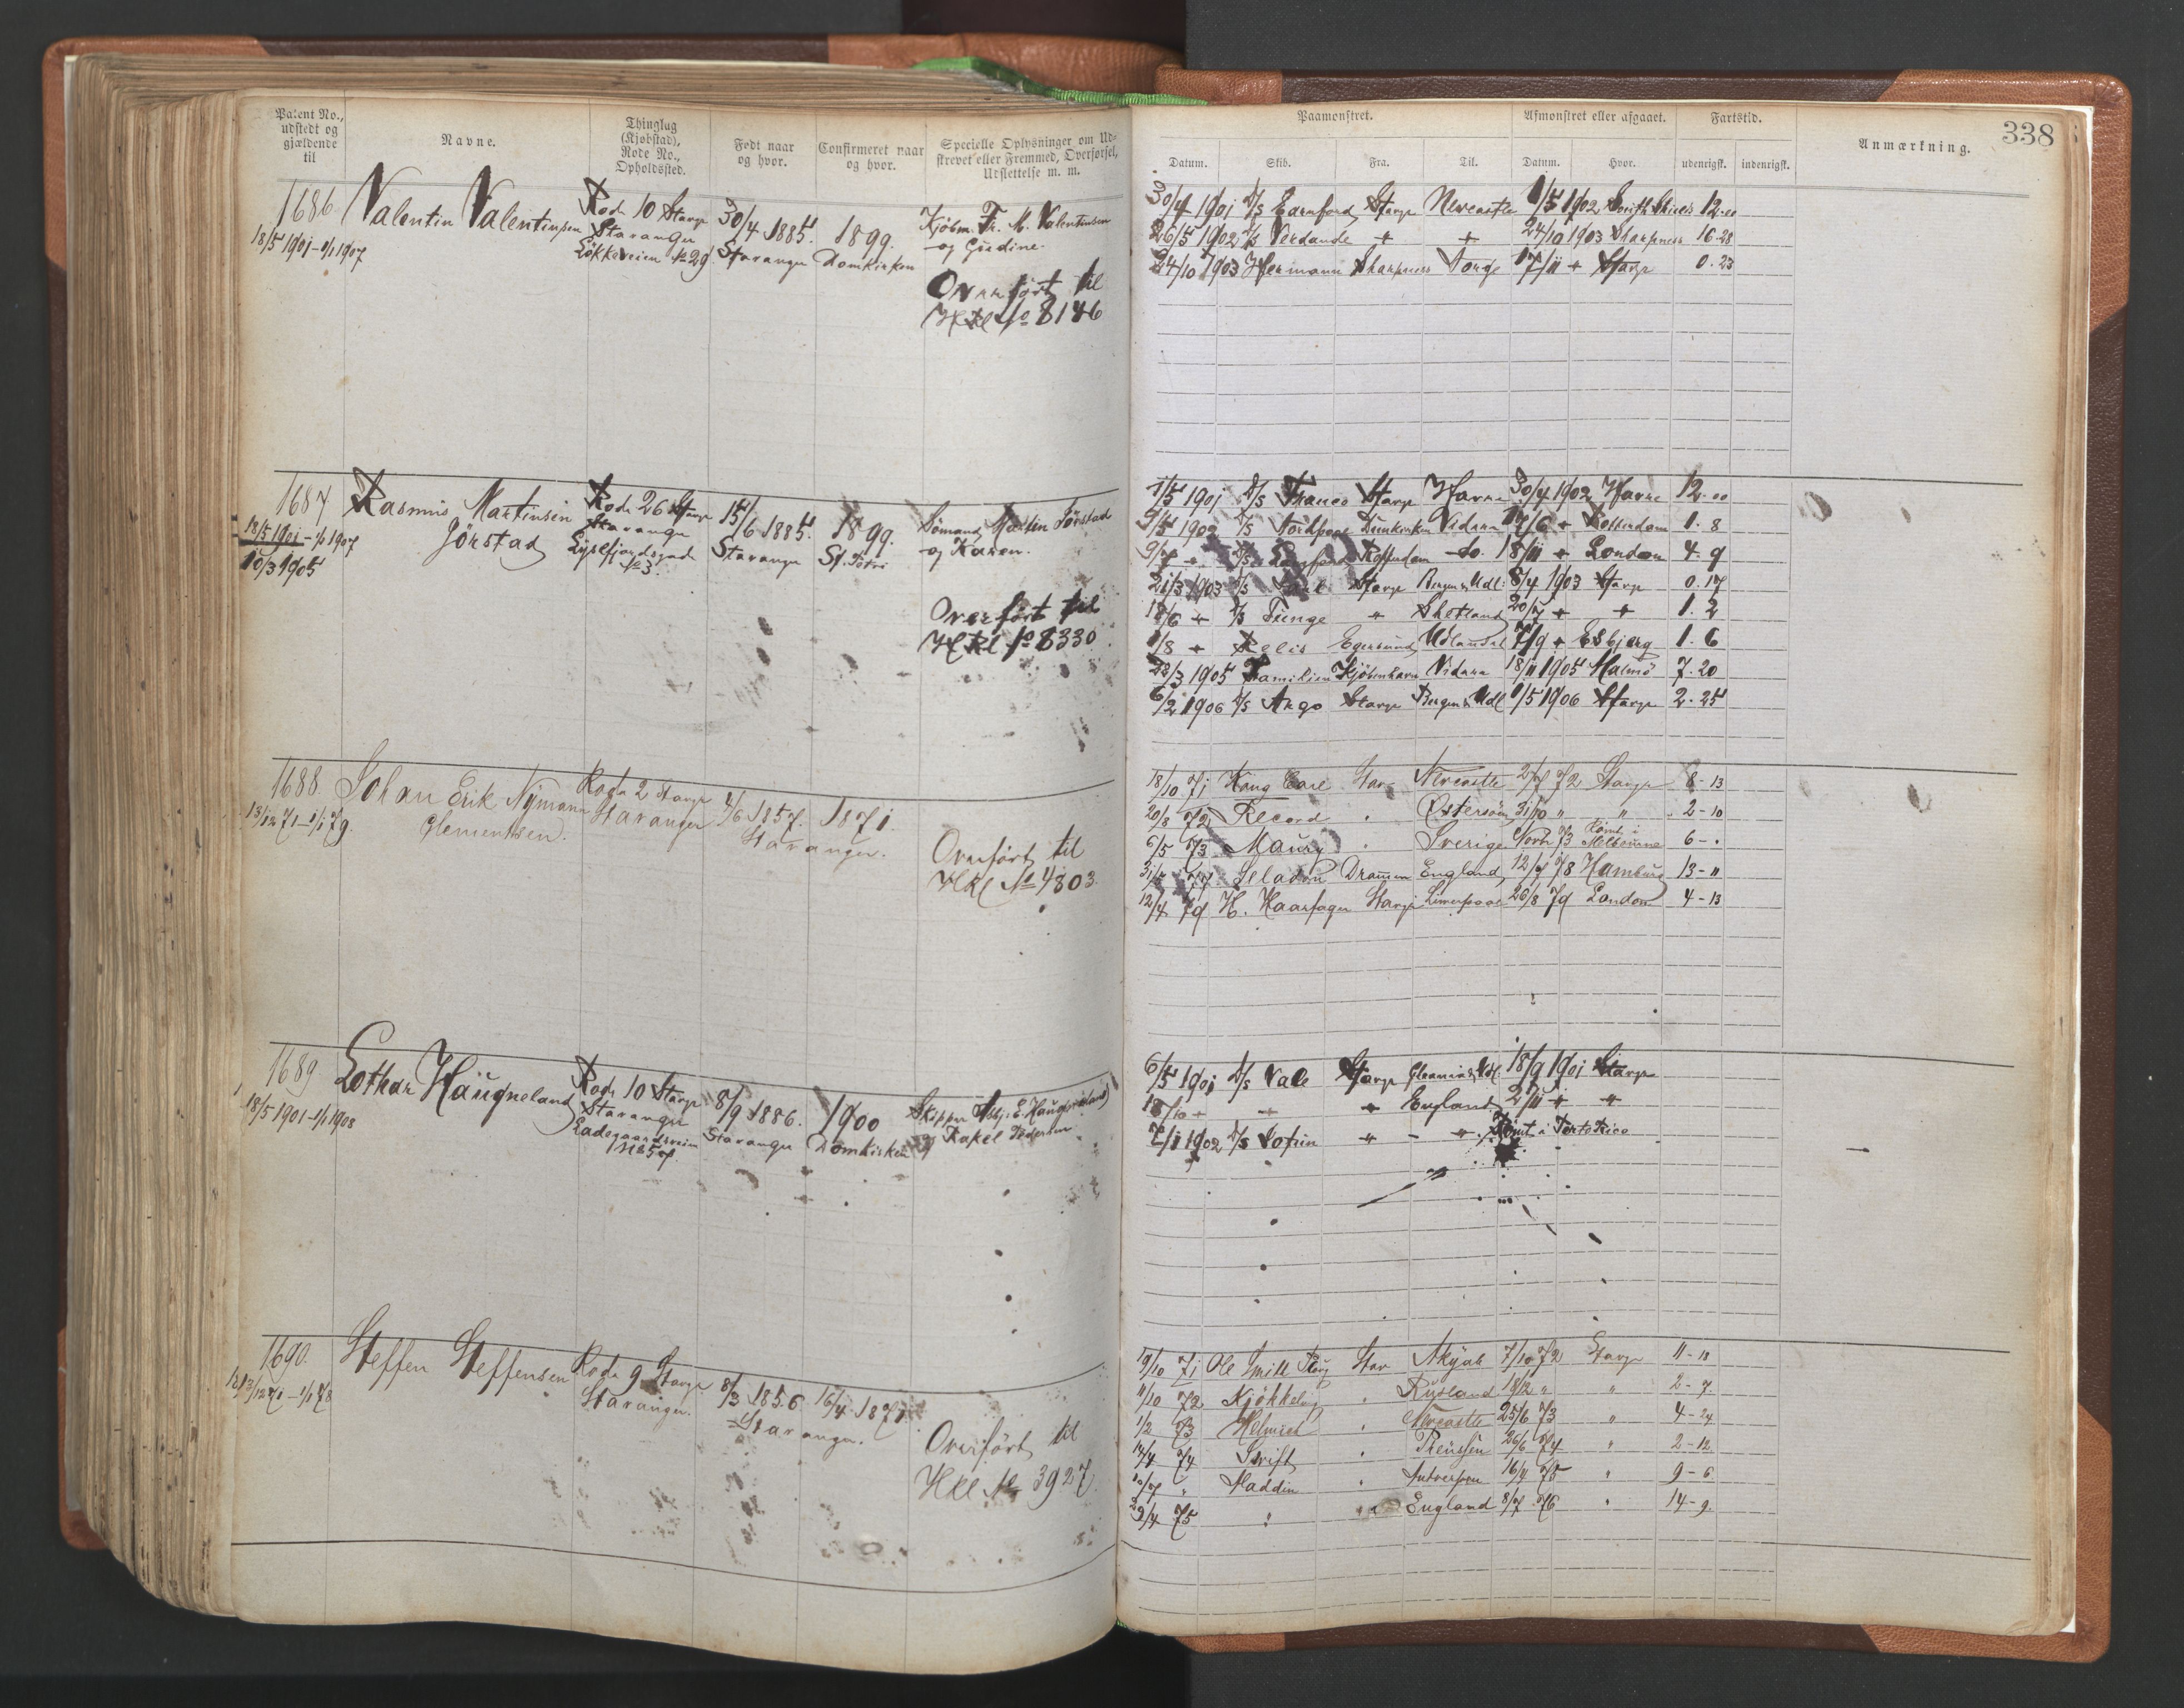 Patent No., udstedt og gjældende til
Navne.
Thinglag (Kjøbstad), Rode No., Opholdssted.
Født naar og hvor.
Confirmeret naar og hvor.
Specielle Oplysninger om Udskrevet eller Fremmed, Overførsel, Udslettelse m. m.
Paamønstret.
Afmønstret eller afgaaet.
Fartstid.
Anmærkning.
338
Datum. Skib. Fra. Til. Datum. Hvor. udenrigsk. indenrigsk.
1686 Valentin Valentinsen
18/5 1901 - 1/1 1907
Rode 10 Starge
Stavanger
Løkkeveien № 29
30/4 1885.
Stavanger
1899.
Domkirken
Kjøbm. Fr. M. Valentinsen
og Gurdine.
Overført til
HRl № 8146
30/4 1901 D/S Earnford Starge Newcastle 1/5 1902 South Shields 12.00
26/5 1902 D/S Verdande + + 24/10 1903 Sharpness 16.28
24/10 1903 Hermann Sharpness Norge 17/11 + Starge 0.23
1687 Rasmus Martinsen
Jörstad
18/5 1901 - 1/1 1907
10/3 1905
Rode 26 Starge
Stavanger
Lysefjordsgad
№ 3.
15/6 1885.
Stavanger
1899.
St. Petri
Sömand Martin Jörstad
og Karen.
Overført til
HRl № 8330
1/5 1901 D/S Franco Starge Havre 30/4 1902 Havre 12.00
9/5 1902 D/S Dunkirken Videre 17/6 + Rotterdam 1.8
9/7 + D/S Rotterdam do. 18/11 + London 4.9
21/3 1903 D/S Starge Bergen & Udl. 8/4 1903 Starge 0.17
18/6 + D/S Tunge " Shetland 20/7 + + 1.2
1/8 + Relis Egersund Udlandet 7/9 + Esbjerg 1.6
28/3 1905 Familien Kjöbenhavn Videre 18/11 1905 Malmö 7.20
6/2 1906 D/S Argo Starge Bergen & Udl 1/5 1906 Starge 2.25
1688. Johan Erik Nymann
Clementsen.
13/12 71 - 1/1 79.
Rode 2 Starge
Stavanger
4/6 1857. 1871.
Stavanger.
Overført til
HRl № 4803.
18/10 71 Kong Carl Star Newcastle 2/7 72 Starge 8-13
20/8 72 Record " Østersøn 31/10 " " 2-10
6/5 73 Maury " Sverige Novbr 73 Rømt i Melbourne 6-.
77 Seladon Drammen England 12/7 78 Hamburg 13-"
12/4 79 H. Haarfager Starge Liverpool 26/8 79 London 4-13
1689 Lothar Haugneland
18/5 1901 - 1/1 1908
Rode 10 Starge
Stavanger
Ladegaardsveien
№ 57
8/9 1886.
Stavanger
1900
Domkirken
Skipper Asbj. E. Haugneland
og Rakel Pedersen
6/5 1901 D/S Vale Starge 18/9 1901 Starge
18/10 + - + England 2/11 + "
7/1 1902 D/S " - " Rømt i Porto Rico
1690. Steffen Steffensen
13/12 71 - 1/1 78
Rode 9 Starge
Stavanger.
8/3 1856 16/4 1871.
Stavanger.
Overført til
HRl № 3927.
19/10 71 Ole Smitt Ploug Star Akyab 7/10 72 Starge 11-18
11/10 72 Kjøkkelvig " Rusland 18/12 " " 2-7
1/2 73 Helmich " Newcastle 25/6 73 " 4-24
14/4 74 Swift " Preussen 26/6 74 " 2-12
10/7 " Aladdin " Antverpen 16/4 75 " 9-6
29/4 75 " " England 8/7 76 " 14-9.